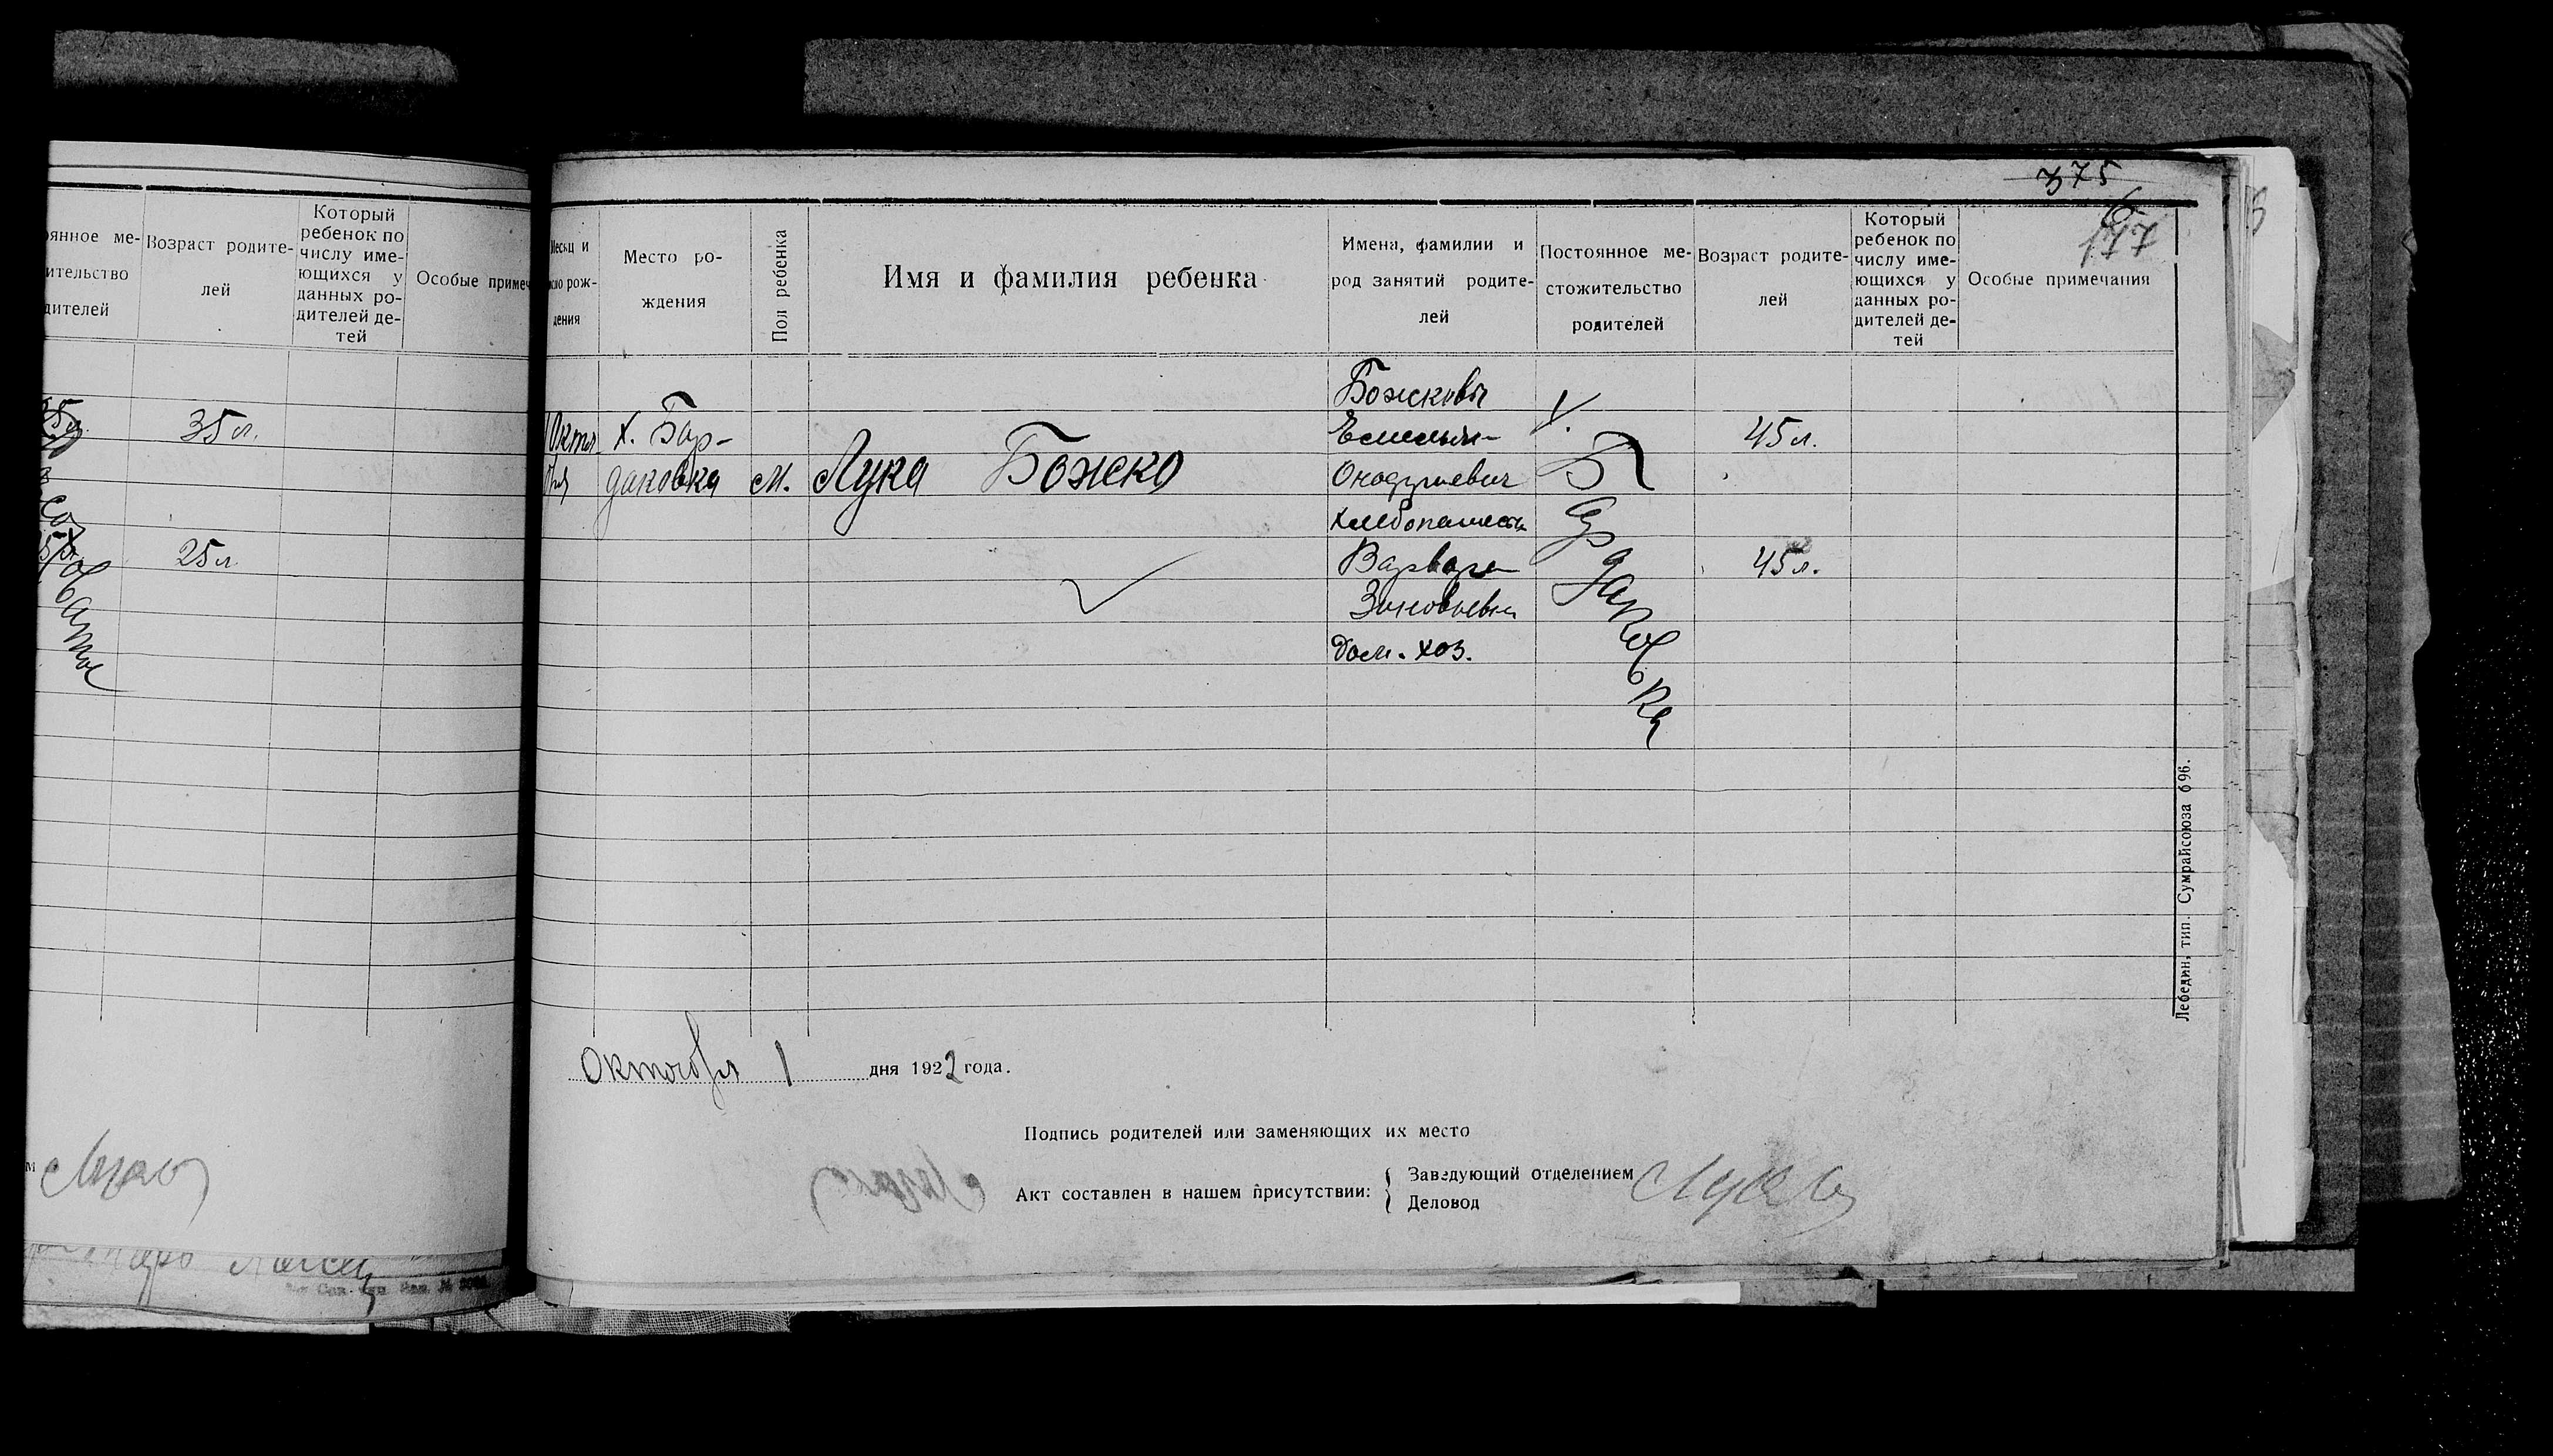 янное ме-
ительство
дителей
Возраст родите-
лей
Который
ребенок по
числу име-
ющихся у
данных ро-
дителей де-
тей
Особые примеч
35 л.
25 л.
375
177
Месяц и
число рож-
дения
Место ро-
ждения
Пол ребенка
Имя и фамилия ребенка
Имена, фамилии и
род занятий родите-
лей
Постоянное ме-
стожительство
родителей
Возраст родите-
лей
Который
ребенок по
числу име-
ющихся у
данных ро-
дителей де-
тей
Особые примечания
1 Октя-
бря
х. Бар-
даковка
м.
Лука Божко
Божковы
Емельян
хлебопашест
Варвара
Зиновьевна
дом. хоз.
х.
Бардаковка
45 л.
45 л.
Октября 1 дня 1922 года.
Подпись родителей или заменяющих их место
Акт составлен в нашем присутствии:
Заведующий отделением
Деловод
Лебедин, тип. Сумрайсоюза 696.